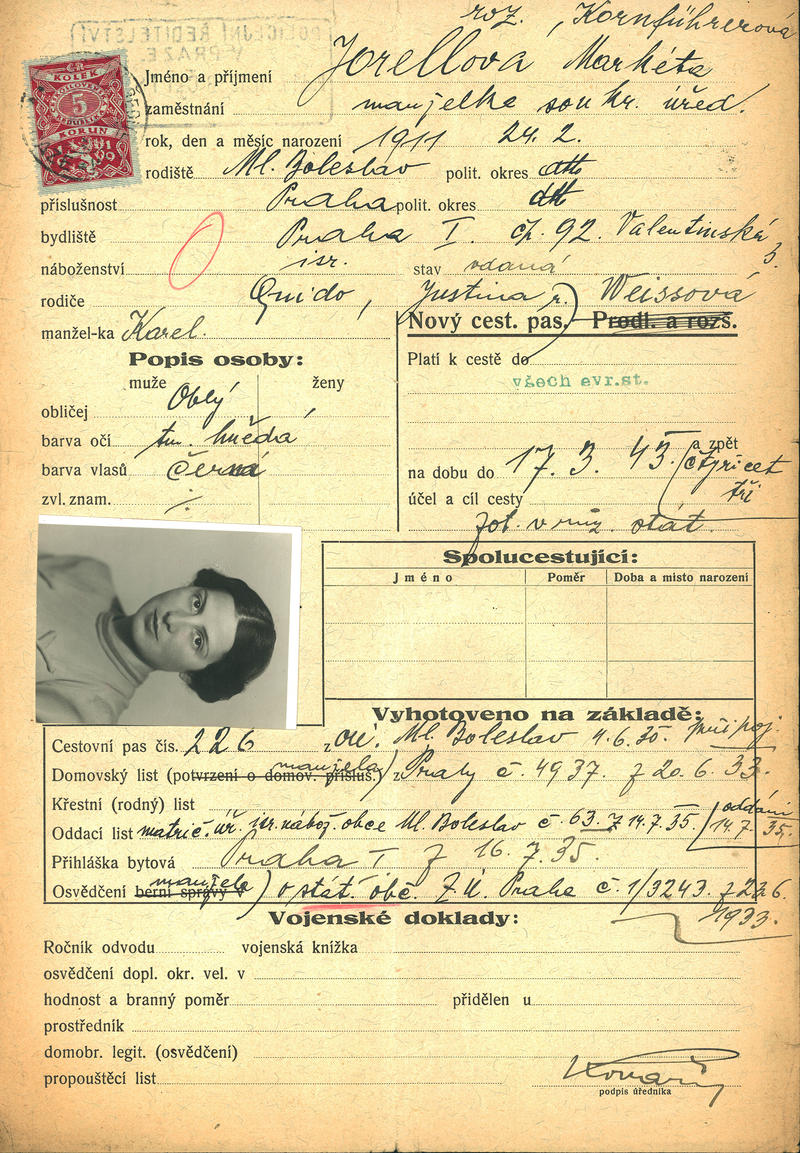 roz. Kornführerová
Jméno a příjmení Jorellova Markéta
zaměstnání manjelka soukr. úřed.
rok, den a měsíc narození 1911 24. 2.
rodiště Ml. Boleslav polit. okres dtto
příslušnost Praha polit. okres dtt
bydliště Praha I. čp. 92. Valentinská 3.
náboženství isr. stav vdaná
rodiče Quido, Justina r. Weissová
manžel-ka Karel.
Nový cest. pas. Prodl. a rozš.
Popis osoby:
Platí k cestě do
všech evr.st.
muže ženy
obličej Oblý
barva očí tm. hnědá
barva vlasů černá
zvl. znam.
na dobu do 17. 3. 43. a zpět
(čtyřicet tři
účel a cíl cesty
stát.
KOLEK
5
KORUN
Spolucestující:
Jméno Poměr Doba a místo narození
Vyhotoveno na základě:
Cestovní pas čís. 226 Ml. Boleslav 4. 6. 30.
Domovský list (potvrzení o domov. přísluš.) manjela) z Prahy č. 4937. z 20. 6. 33.
Křestní (rodný) list
Oddací list matrič. úř. isr. nábož. obce Ml. Boleslav č. 63. z 14. 7. 35. (oddáni 14. 7. 35.
Přihláška bytová Praha I z 16. 7. 35.
Osvědčení berní správy v manjela) o stát. obč. Z. Ú. Praha č. 1/3243. z 22 6. 1933.
Vojenské doklady:
Ročník odvodu vojenská knížka
osvědčení dopl. okr. vel. v
hodnost a branný poměr přidělen u
prostředník
domobr. legit. (osvědčení)
propouštěcí list
podpis úředníka